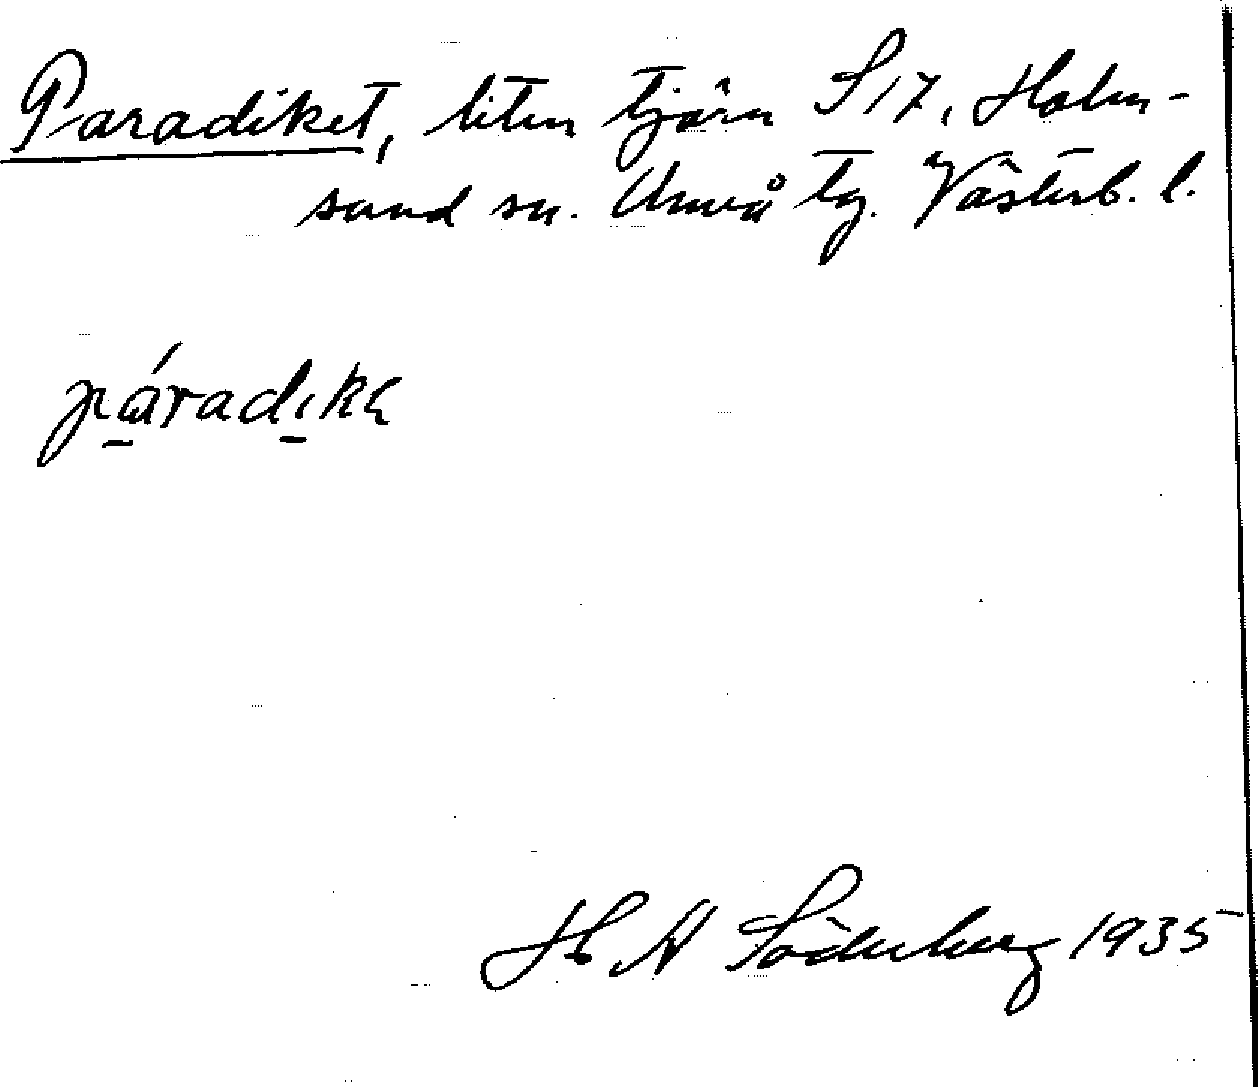 Paradiket, liten tjärn S 17, Holm-
sund sn. Umeå tg. Västerb. l.
páradıkɛ
H W Söderberg 1935